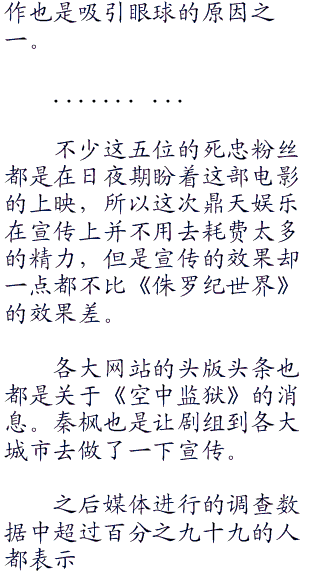 作也是吸引眼球的原因之
一。
······· ···
不少这五位的死忠粉丝
都是在日夜期盼着这部电影
的上映，所以这次鼎天娱乐
在宣传上并不用去耗费太多
的精力，但是宣传的效果却
一点都不比《侏罗纪世界》
的效果差。
各大网站的头版头条也
都是关于《空中监狱》的消
息。秦枫也是让剧组到各大
城市去做了一下宣传。
之后媒体进行的调查数
据中超过百分之九十九的人
都表示